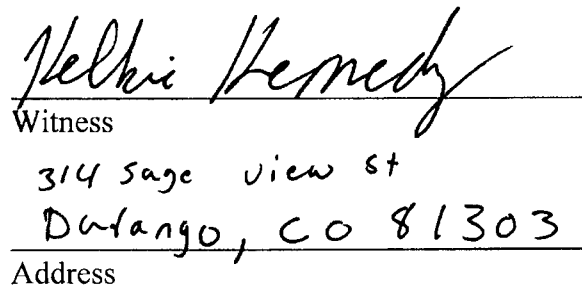 Kennedy
Witness
314 Sage view st
Durango, CO 81303
Address